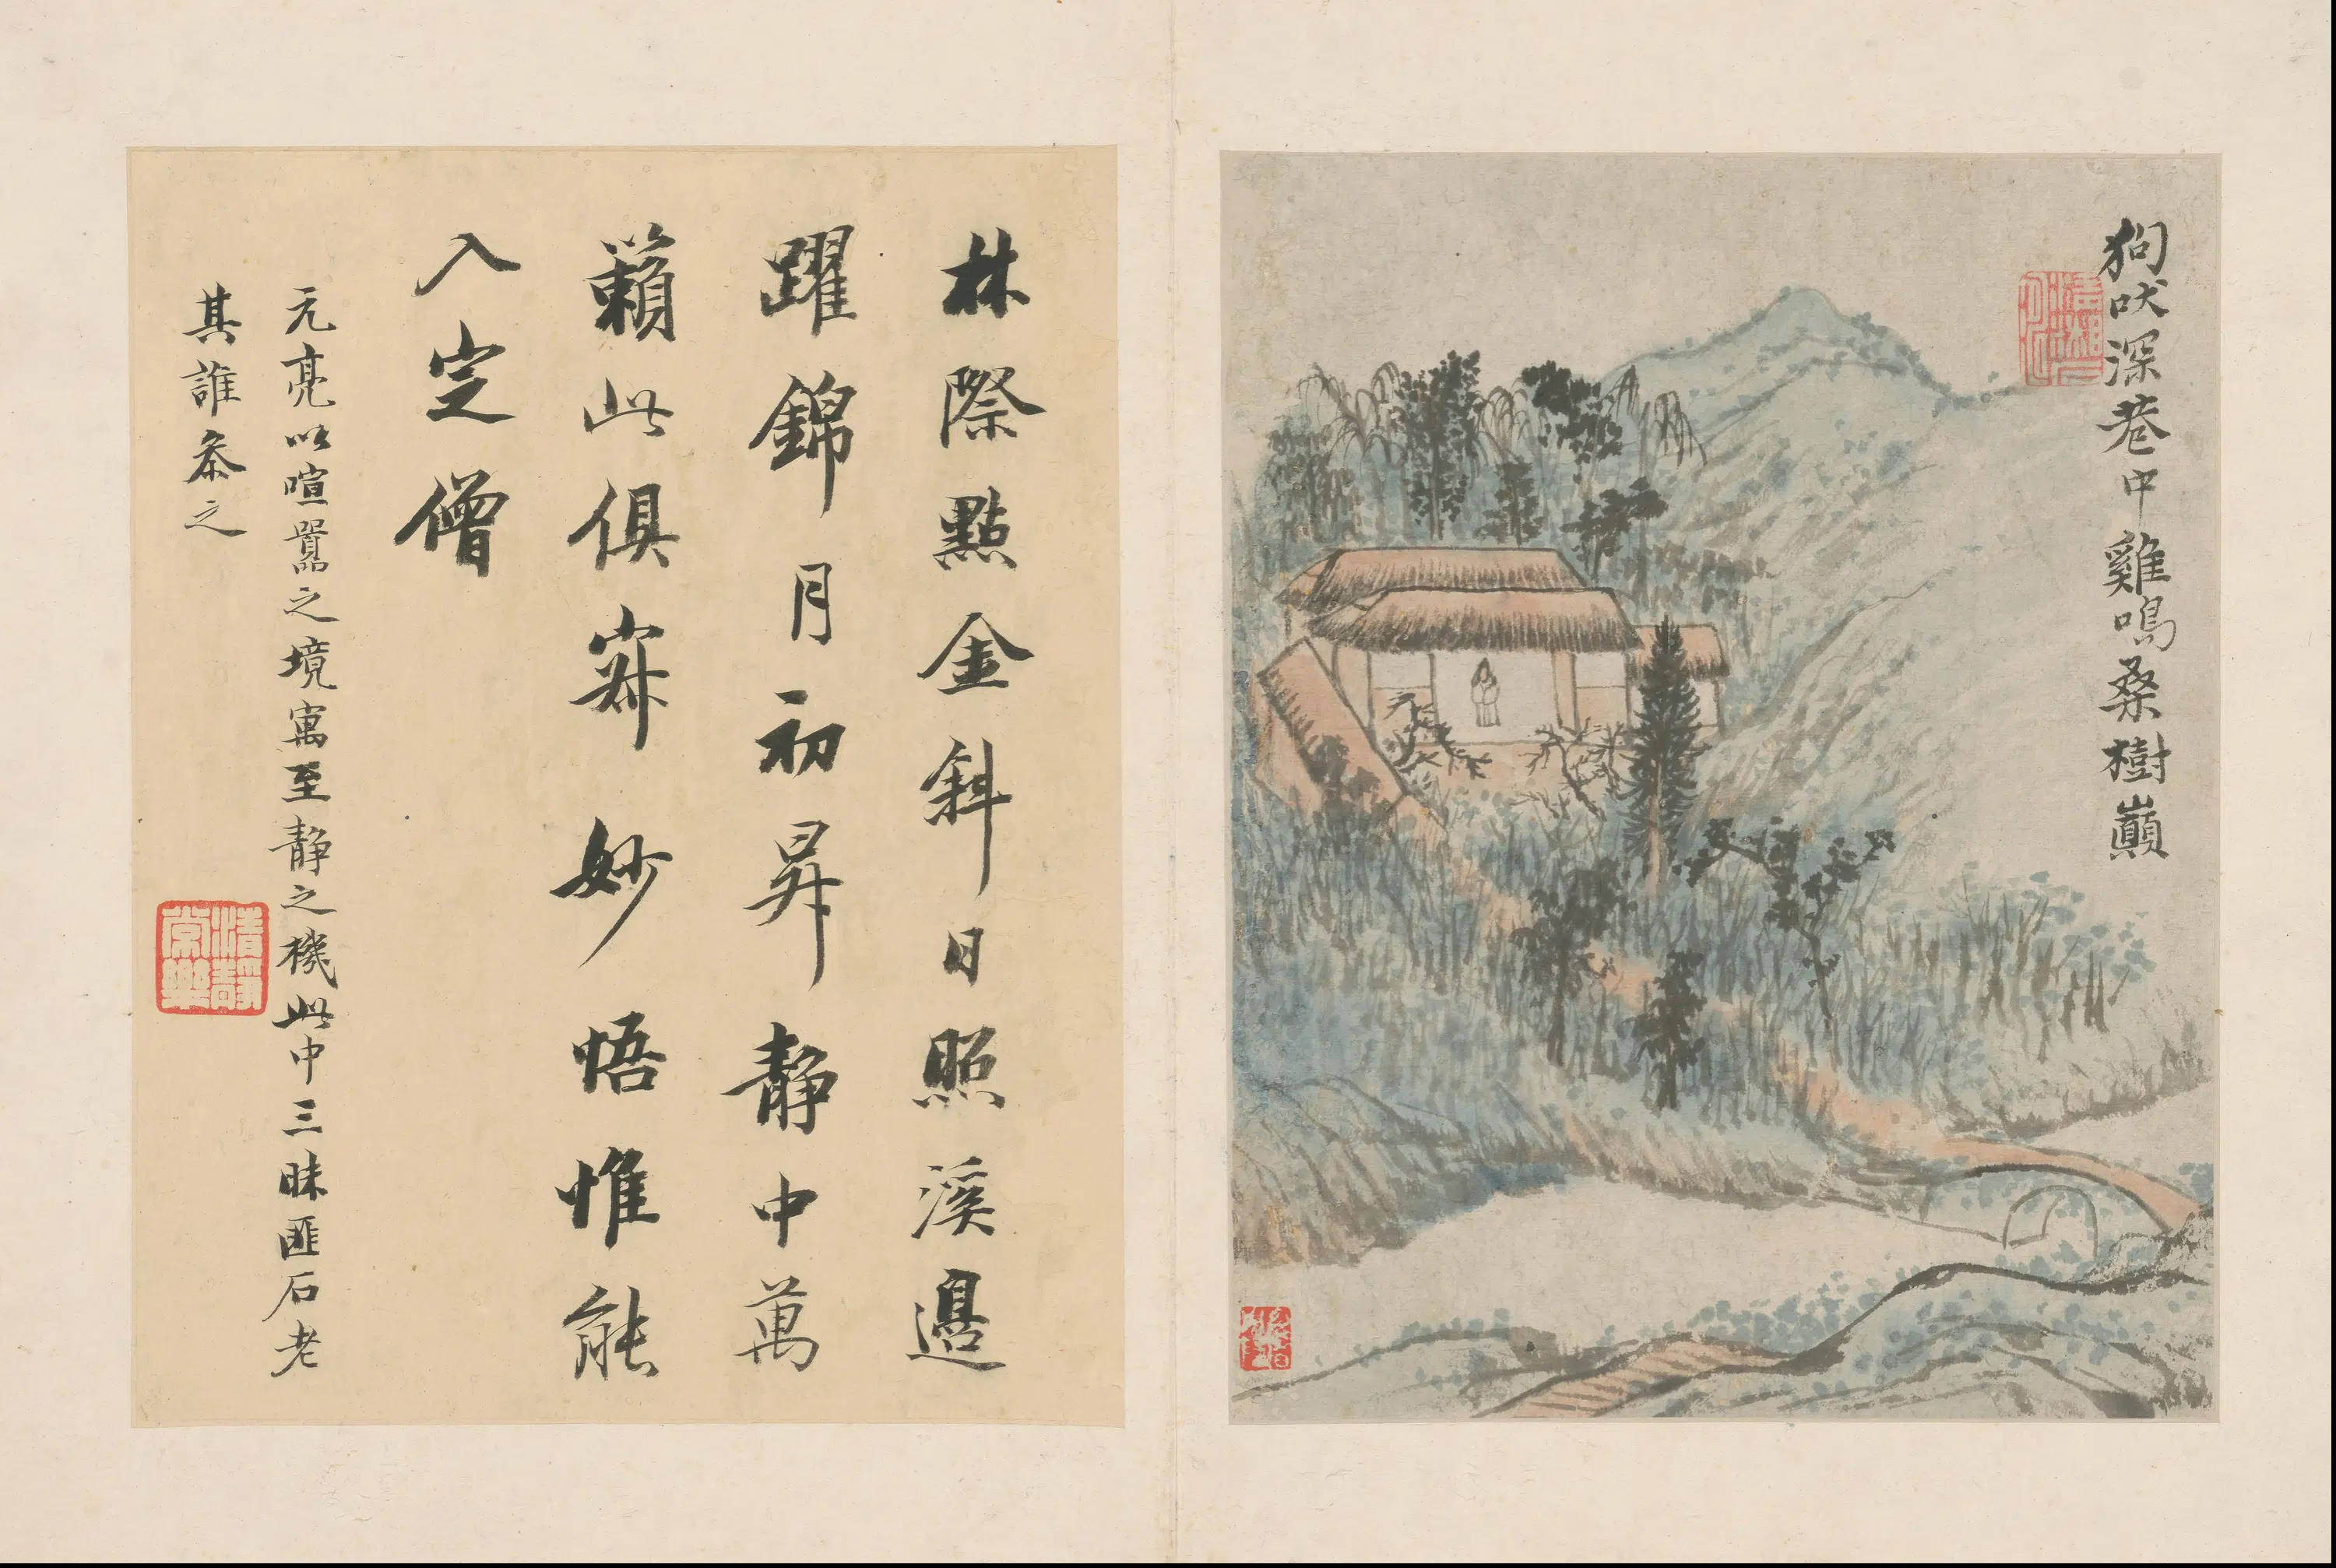 狗吠深巷中雞鳴桑樹巔
林際點金斜日照溪邊
躍錦月初昇静中萬
籟此俱寂妙悟惟能
入定僧
元亮以喧囂之境寓至静之機此中三昧匪石老
其誰叅之
清静常樂